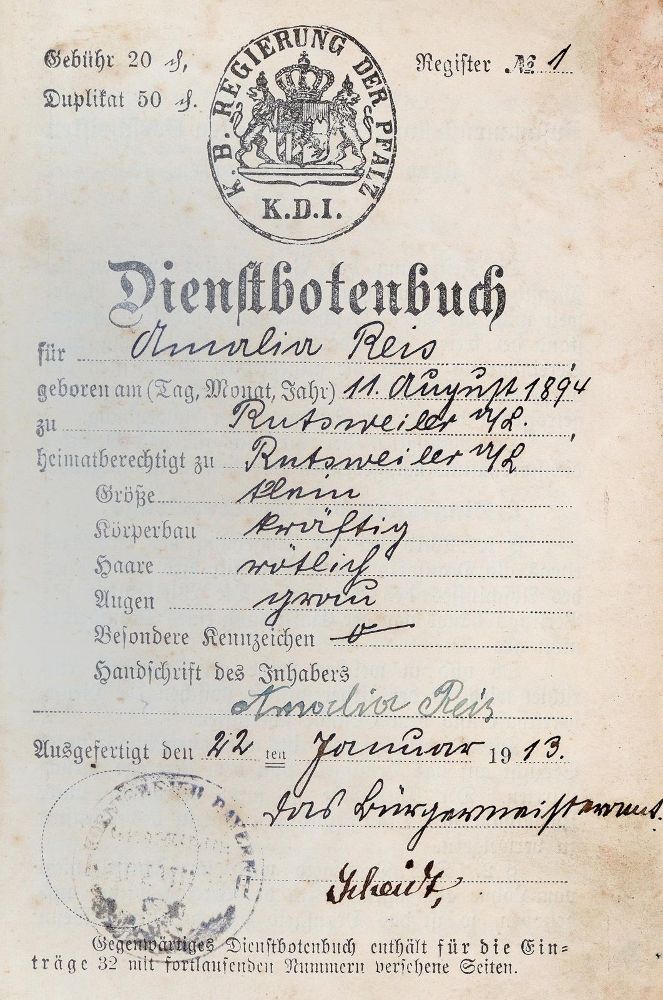 Gebühr 20 ₰,
Duplikat 50 ₰.
K.B. REGIERUNG DER PFALZ
K.D.I.
Register № 1
Dienstbotenbuch
für Amalia Reis,
geboren am (Tag, Monat, Jahr) 11. August 1894
zu Rutsweiler a/L.,
heimatberechtigt zu Rutsweiler a/L
Größe klein
Körperbau kräftig
Haare rötlich
Augen grau
Besondere Kennzeichen o
Handschrift des Inhabers
Amalia Reis
Ausgefertigt den 22 ten Januar 1913.
Das Bürgermeisteramt.
Scheidt,
Gegenwärtiges Dienstbotenbuch enthält für die Ein=
träge 32 mit fortlaufenden Nummern versehene Seiten.